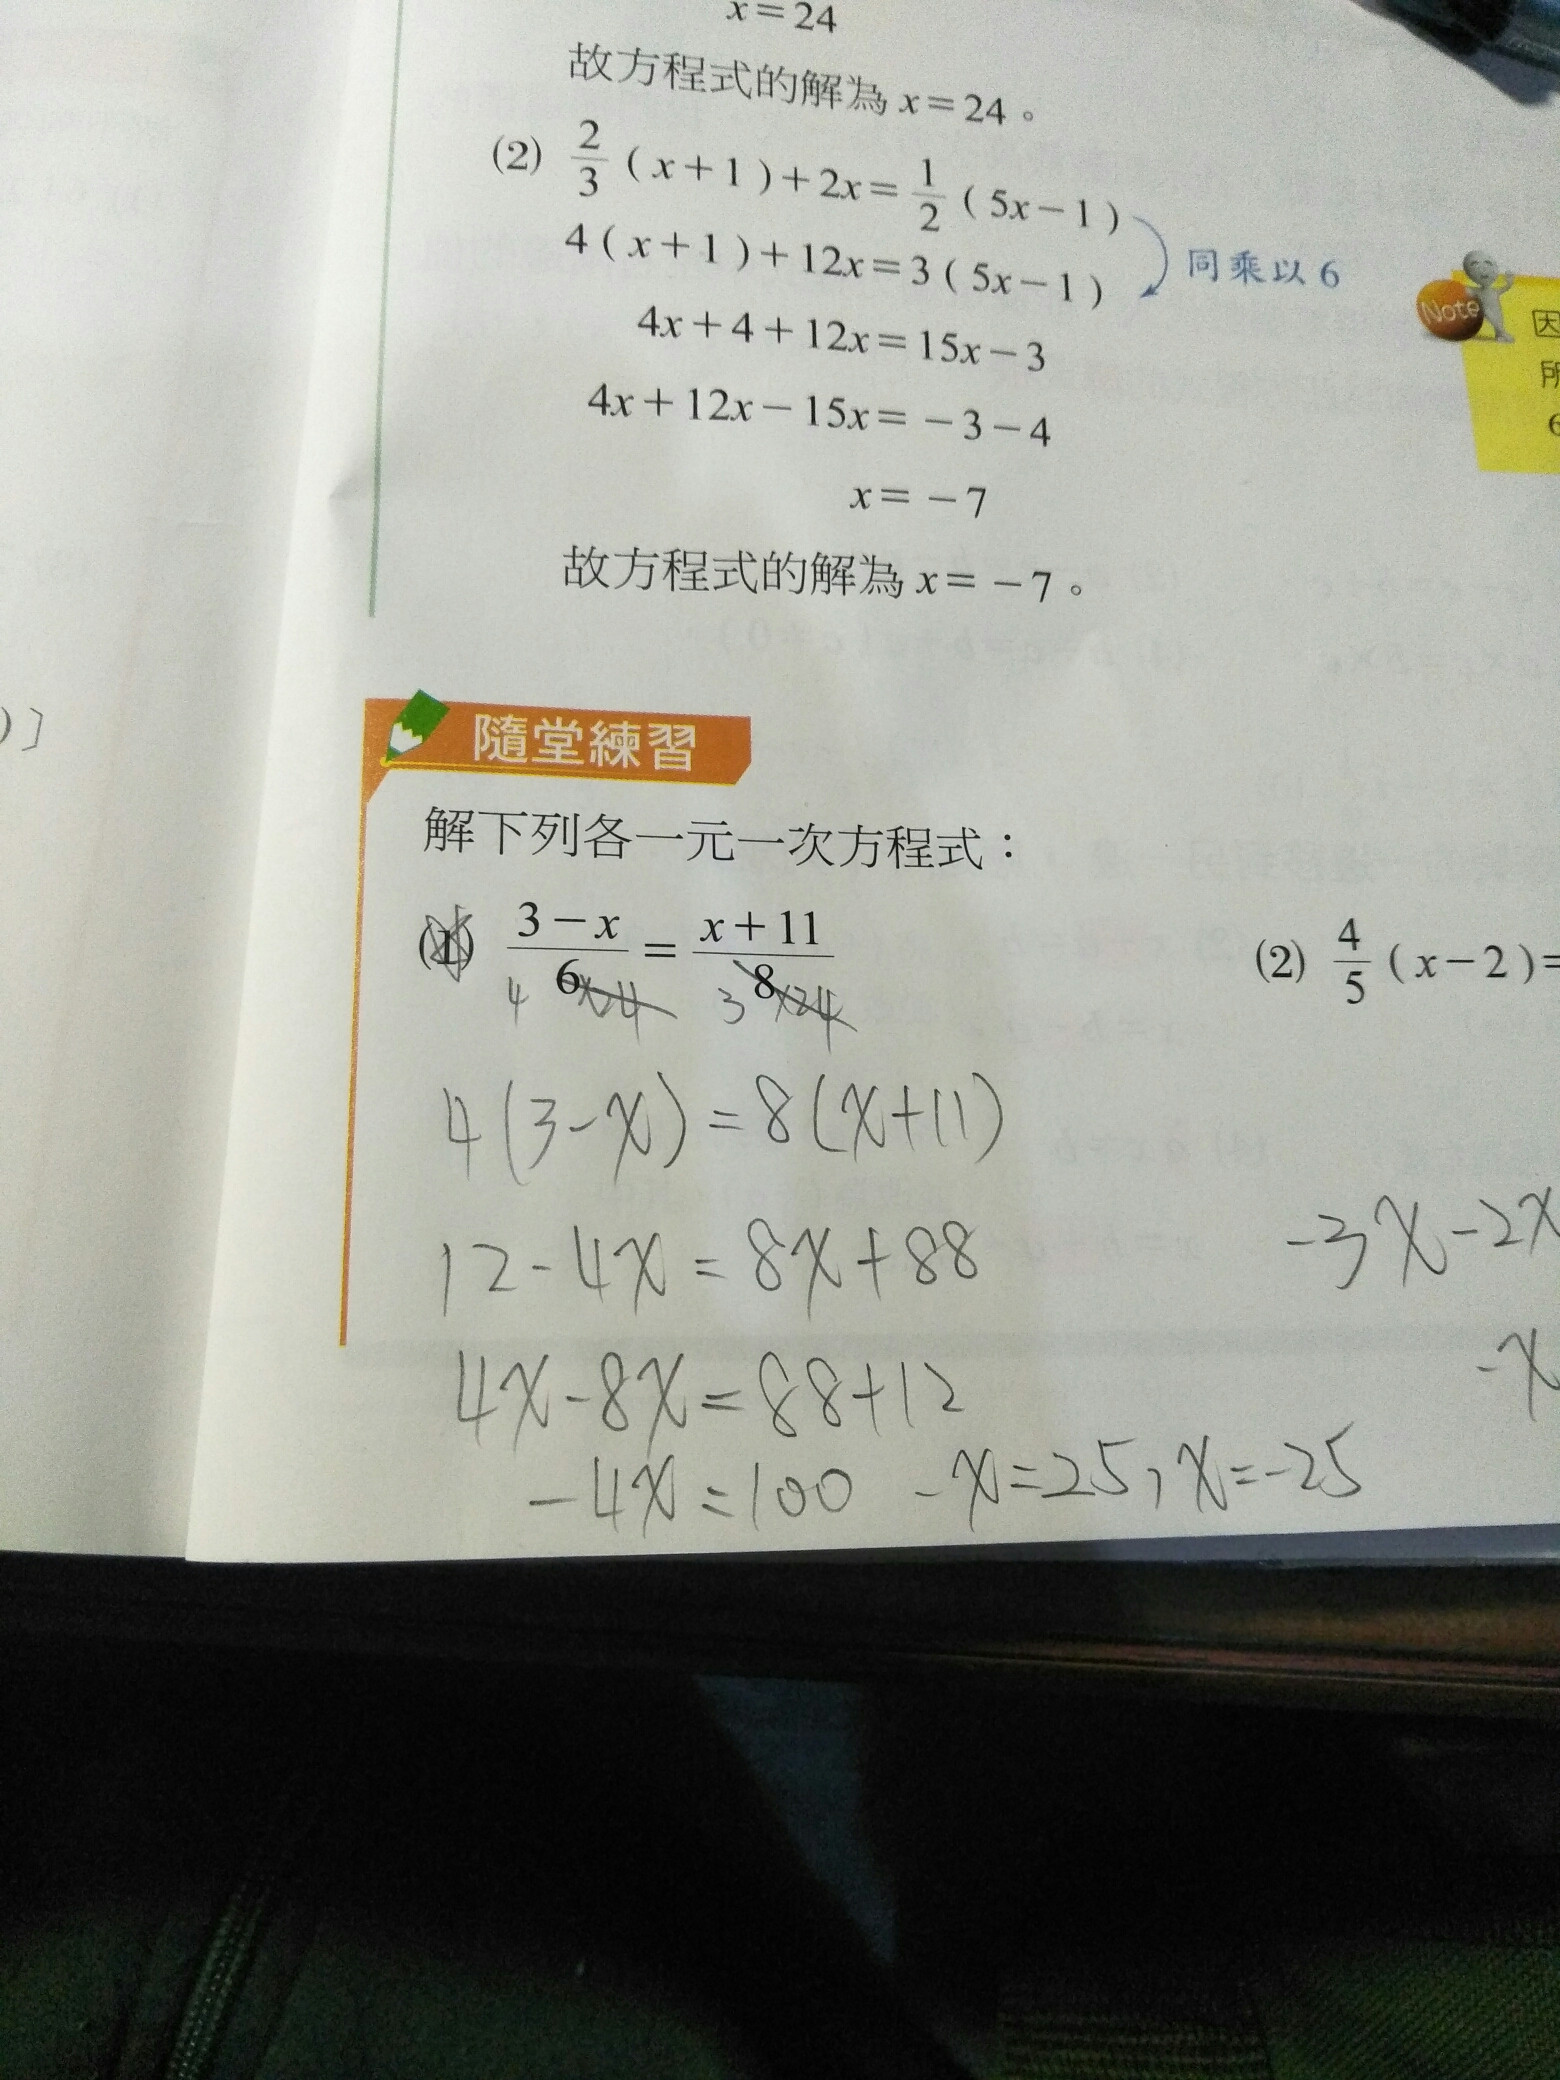 x=24
故方程式的解為 x=24。
(2) 2/3 (x+1)+2x=1/2 (5x-1)
4(x+1)+12x=3(5x-1)
同乘以 6
4x+4+12x=15x-3
4x+12x-15x=-3-4
x=-7
故方程式的解為 x=-7。
Note
因
所
6
)]
隨堂練習
解下列各一元一次方程式：
(1) (3-x)/6 = (x+11)/8
4 ×24 3 ×24
(2) 4/5 (x-2)=
4(3-x)=8(x+11)
12-4x=8x+88
4x-8x=88+12
-4x=100 -x=25, x=-25
-3x-2x
-x